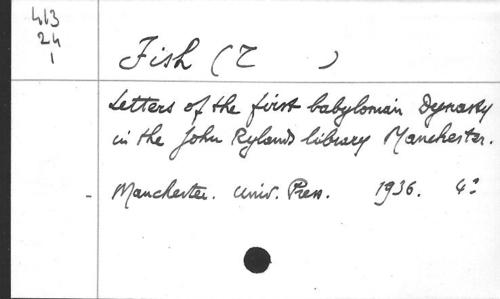 413
24
1
Fish (T )
Letters of the first babylonian Dynasty
in the John Rylands library Manchester.
- Manchester. Univ. Press. 1936. 4°